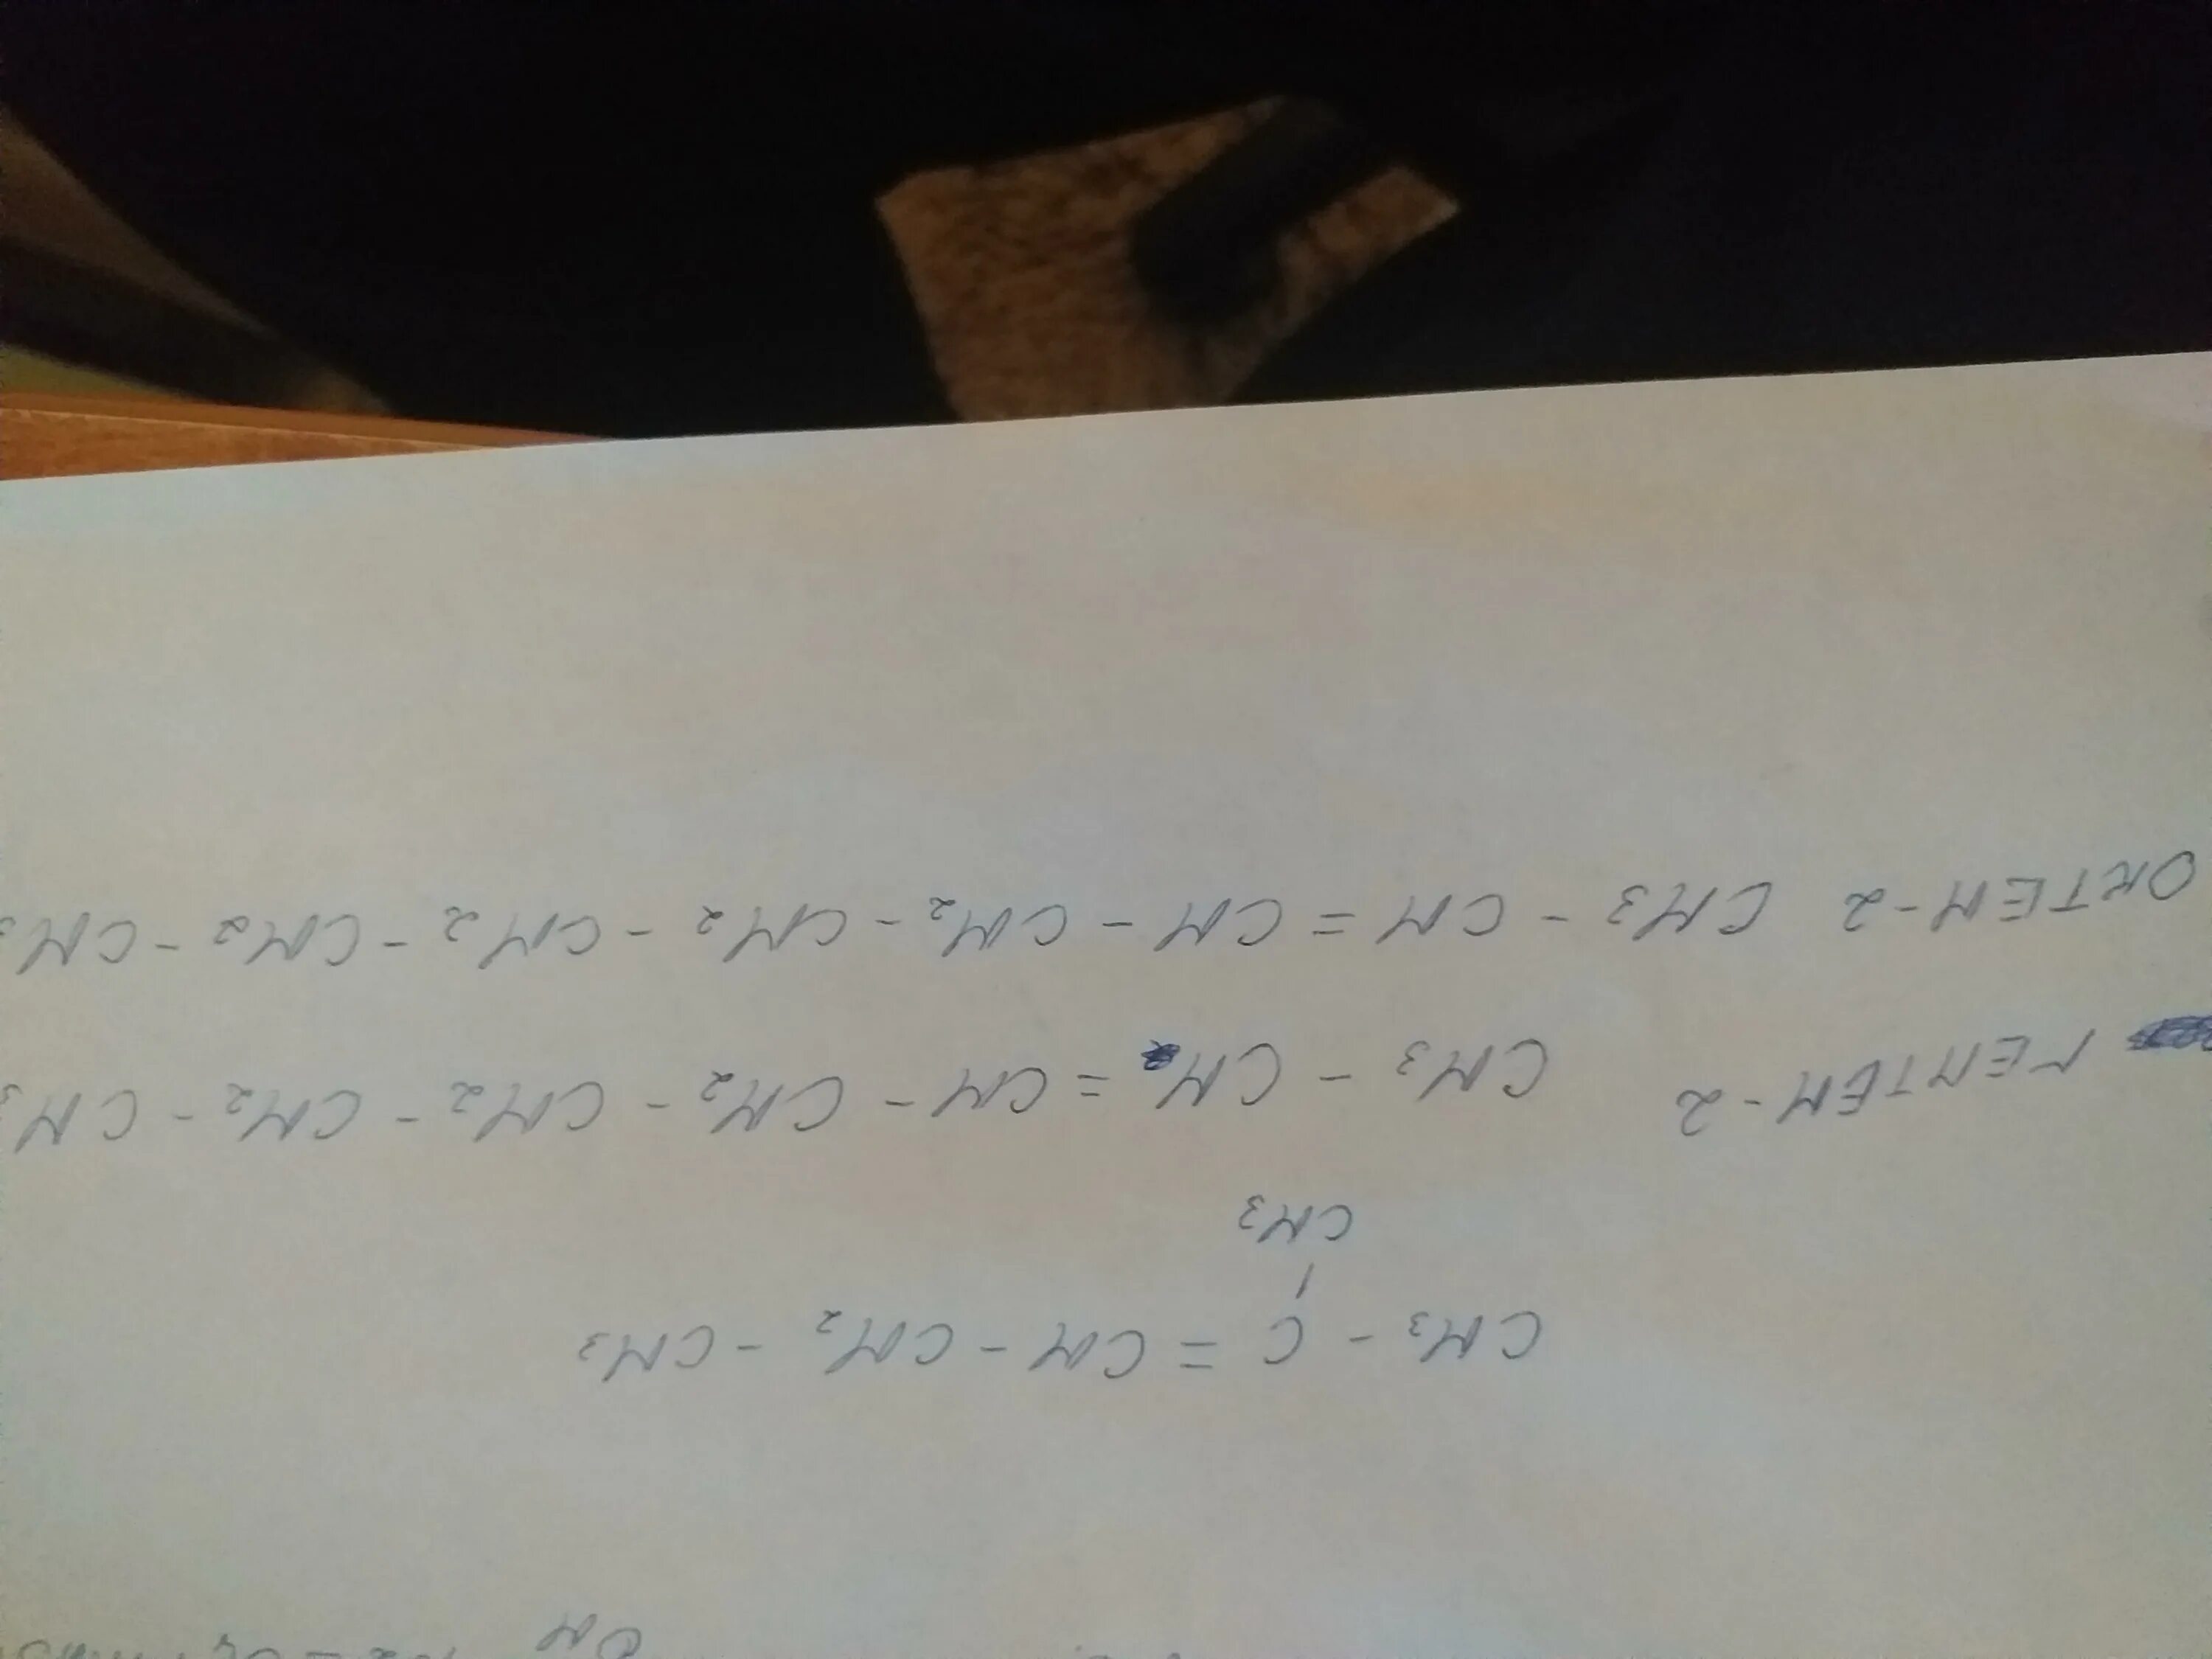 OH
CH₃ - C = CH - CH₂ - CH₃
CH₃
ГЕПТЕН-2 CH₃ - CH = CH - CH₂ - CH₂ - CH₂ - CH₃
ОКТЕН-2 CH₃ - CH = CH - CH₂ - CH₂ - CH₂ - CH₂ - CH₃